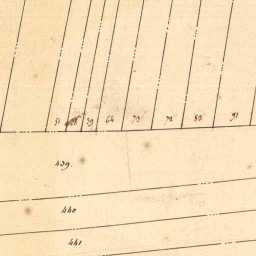 51 58 59 64 73 74 80 91
439.
440
441